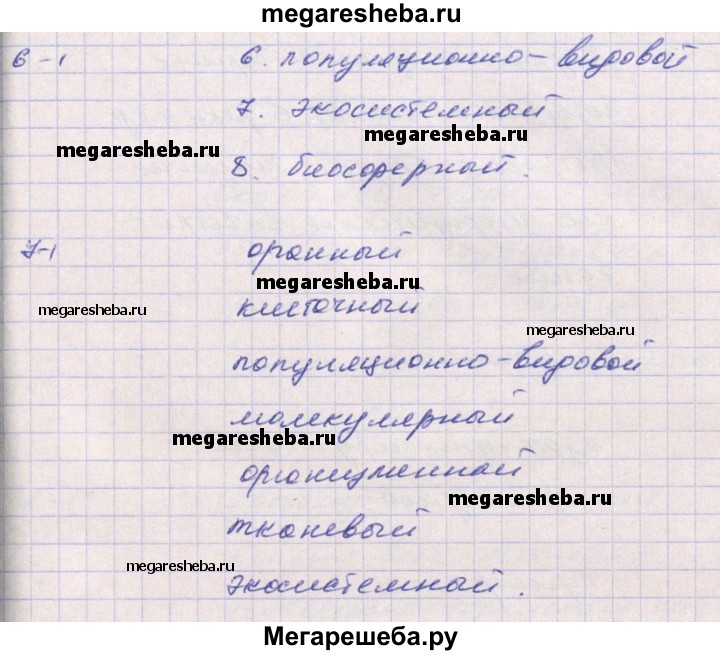 megaresheba.ru
6-1 6. популяционно-видовой
7. экосистемный
megaresheba.ru
megaresheba.ru
8. биосферный.
7-1 органный
megaresheba.ru
megaresheba.ru клеточный
megaresheba.ru
популяционно-видовой
молекулярный
megaresheba.ru
организменной
megaresheba.ru
тканевый
megaresheba.ru
экосистемный.
Мегарешеба.ру